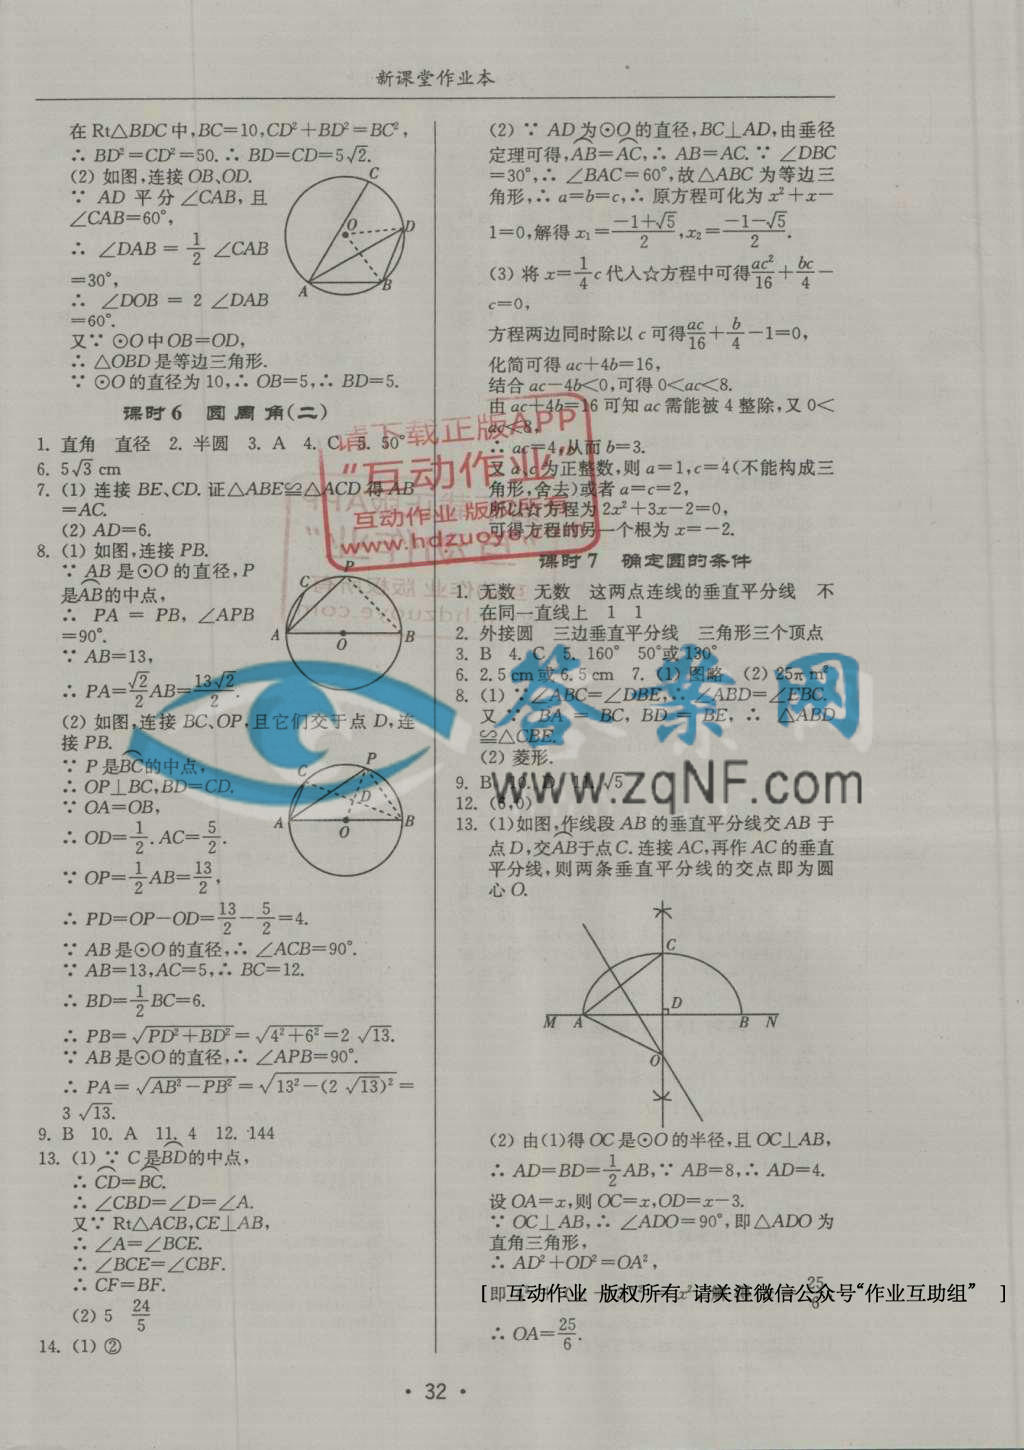 新课堂作业本
在Rt△BDC中,BC=10,CD²+BD²=BC²,
∴ BD²=CD²=50.∴ BD=CD=5√2.
(2) 如图,连接OB、OD.
∵ AD 平分∠CAB,且
∠CAB=60°,
∴ ∠DAB = 1/2 ∠CAB
=30°,
∴ ∠DOB = 2 ∠DAB
=60°.
又∵ ⊙O中OB=OD,
∴ △OBD是等边三角形.
∵ ⊙O的直径为10,∴ OB=5,∴ BD=5.
C
O
D
A
B
课时6 圆周角(二)
1. 直角 直径 2. 半圆 3. A 4. C 5. 50°
6. 5√3 cm
7. (1) 连接BE、CD. 证△ABE≌△ACD得AB
=AC.
(2) AD=6.
8. (1) 如图,连接PB.
∵ AB是⊙O的直径,P
是AB的中点,
∴ PA = PB, ∠APB
=90°.
∵ AB=13,
∴ PA=√2/2 AB=13√2/2.
C
P
A
O
B
(2) 如图,连接BC、OP,且它们交于点D,连
接PB.
∵ P是BC的中点,
∴ OP⊥BC,BD=CD.
∵ OA=OB,
∴ OD=1/2.AC=5/2.
∵ OP=1/2AB=13/2,
C
P
D
A
O
B
∴ PD=OP−OD=13/2−5/2=4.
∵ AB是⊙O的直径,∴ ∠ACB=90°.
∵ AB=13,AC=5,∴ BC=12.
∴ BD=1/2BC=6.
∴ PB=√PD²+BD²=√4²+6²=2 √13.
∵ AB是⊙O的直径,∴ ∠APB=90°.
∴ PA= √AB²−PB²=√13²−(2 √13)²=
3 √13.
9. B 10. A 11. 4 12. 144
13. (1) ∵ C是BD的中点,
∴ CD=BC.
∴ ∠CBD=∠D=∠A.
又∵ Rt△ACB,CE⊥AB,
∴ ∠A=∠BCE.
∴ ∠BCE=∠CBF.
∴ CF=BF.
(2) 5 24/5
14. (1) ②
(2) ∵ AD为⊙O的直径,BC⊥AD,由垂径
定理可得,AB=AC,∴ AB=AC. ∵ ∠DBC
=30°,∴ ∠BAC=60°,故△ABC为等边三
角形,∴ a=b=c,∴ 原方程可化为x²+x−
1=0,解得x₁=−1+√5/2,x₂=−1−√5/2.
(3) 将x=1/4c代入☆方程中可得ac²/16+bc/4−
c=0,
方程两边同时除以c可得ac/16+b/4−1=0,
化简可得ac+4b=16,
结合ac−4b<0,可得0<ac<8.
由ac+4b=16可知ac需能被4整除,又0<
ac<8,
∴ ac=4,从而b=3.
又a、c为正整数,则a=1,c=4(不能构成三
角形,舍去)或者a=c=2,
所以☆方程为2x²+3x−2=0,
可得方程的另一个根为x=−2.
课时7 确定圆的条件
1. 无数 无数 这两点连线的垂直平分线 不
在同一直线上 1 1
2. 外接圆 三边垂直平分线 三角形三个顶点
3. B 4. C 5. 160° 50°或130°
6. 2.5cm或6.5cm 7. (1) 图略 (2) 25π m²
8. (1) ∵ ∠ABC=∠DBE,∴ ∠ABD=∠EBC.
又 ∵ BA = BC, BD = BE, ∴ △ABD
≌△CBE.
(2) 菱形.
9. B √5
12. (6,0)
13. (1)如图,作线段AB的垂直平分线交AB于
点D,交AB于点C. 连接AC,再作AC的垂直
平分线,则两条垂直平分线的交点即为圆
心O.
C
D
M A B N
O
(2) 由(1)得OC是⊙O的半径,且OC⊥AB,
∴ AD=BD=1/2AB,∵ AB=8,∴ AD=4.
设OA=x,则OC=x,OD=x−3.
∵ OC⊥AB,∴ ∠ADO=90°,即△ADO为
直角三角形,
∴ AD²+OD²=OA²,
即 25/6
∴ OA=25/6.
[ 互动作业 版权所有 请关注微信公众号“作业互助组” ]
· 32 ·
请下载正版APP
“互动作业”
互动作业 版权所有
www.hdzuoye.com
答案网
www.zqNF.com